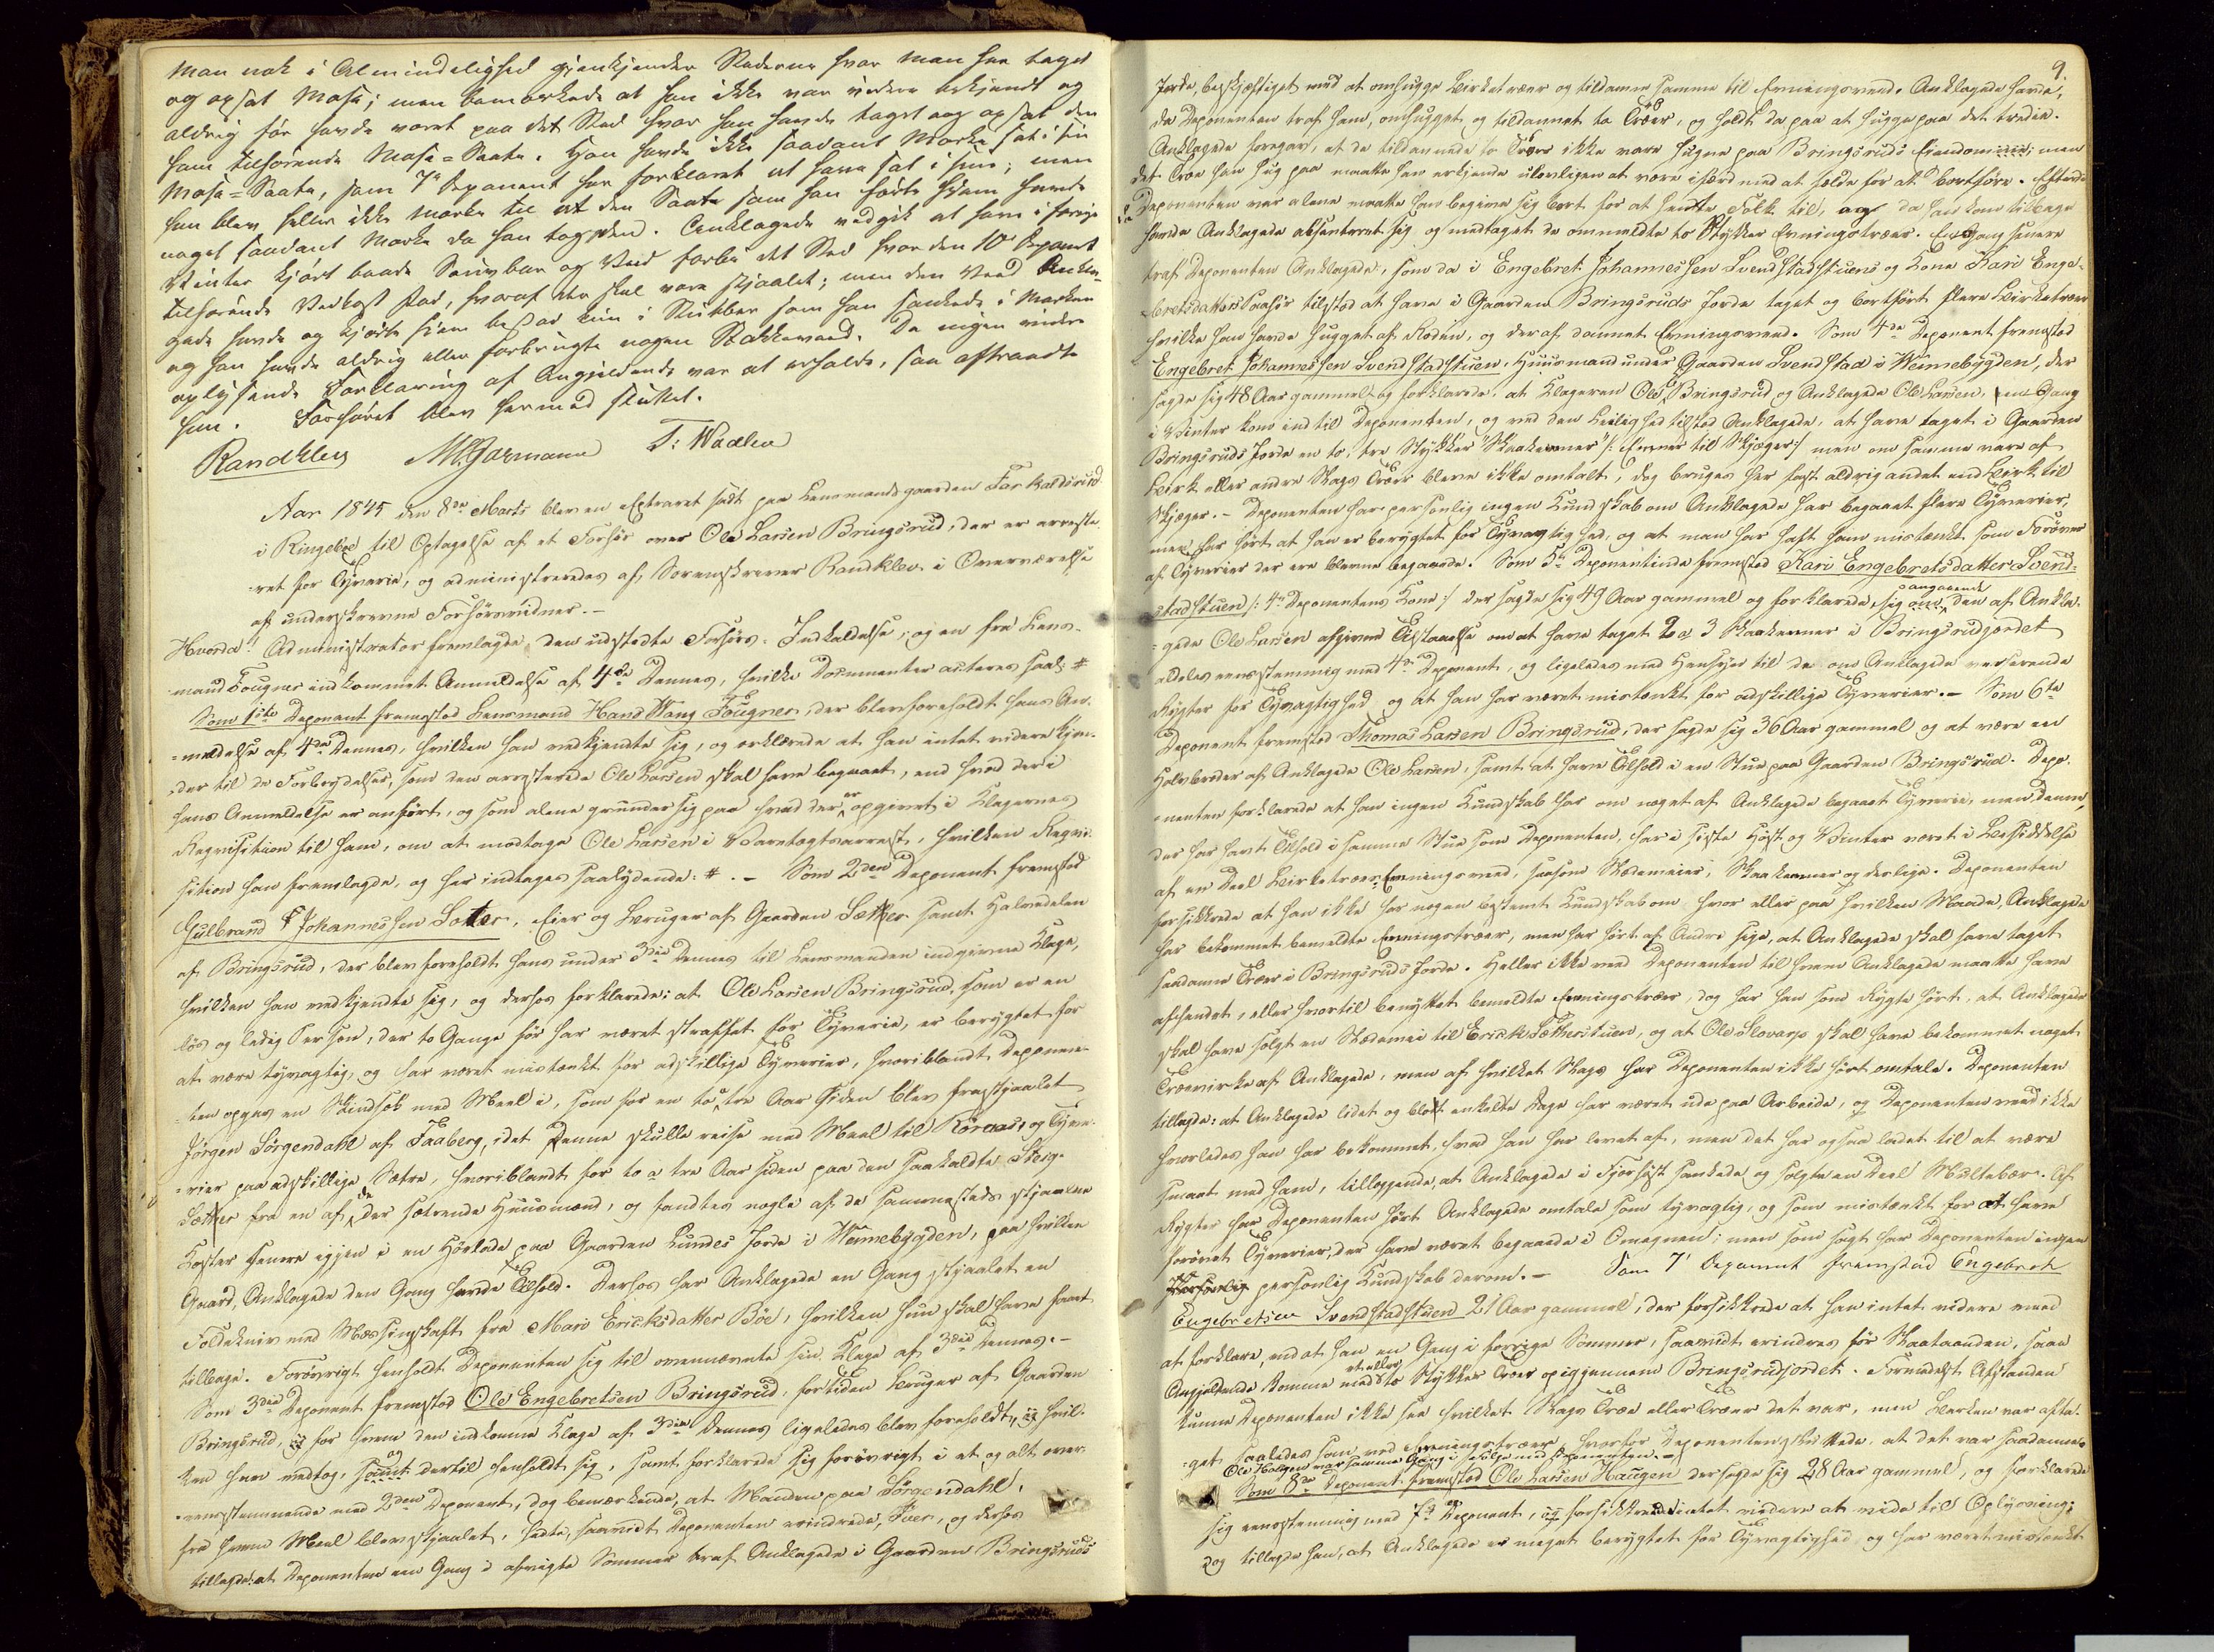 Man nok i Almindelighed gjenkjender Stæderne hvor Man har taget
og opsat Mose; men bemærkede at han ikke var videre bekjendt og
aldrig før havde været paa det Sted hvor han havde taget og opsat den
ham tilhørende Mose-Saate. Han havde ikke saadant Mærke sat i sin
Mose-Saate, som 7de Deponent har forklaret at have sat i sin; men
han blev heller ikke Mærke til at den Saate som han førte hjem havde
noget saadant Mærke da han tog den. Anklagede vedgik at have i forrige
Vinter kjørt baade Søinbar og Ved forbi det Sted hvor den 10de Deponent
tilhørende Vedkast stod, hvoraf der skal være stjaalet; men den Veed Ankla-
gede havde og kjørte hjem bestod kun i som han sankede i Marken
og han havde aldrig eller forbrugte nogen Stakkeveed. Da ingen videre
oplysende Forklaring af Angjeldende var at erholde, saa aftraadte
han. Forhøret blev hermed sluttet.
Randklev M. Garmann T: Waalen
Aar 1845 den 8de Marts blev en Extraret sadt paa Lensmandsgaarden Forkaldsrud
i Ringeboe til Optagelse af et Forhør over Ole Larsen Bringsrud, der er arreste-
ret for Tyverie, og administreredes af Sorenskriver Randklev i Overværelse
af underskrevne Forhørsvidner.-
Hvorda! Administrator fremlagde den udstedte Forhørs-Indkaldelse, og en fra Lens-
mand Fougner indkommet Anmeldelse af 4de Dennes, hvilke Documenter acteres saal: #
Som 1ste Deponent fremstod Lensmand Hans Wang Fougner, der blev foreholdt hans An-
meldelse af 4de Dennes, hvilken han vedkjendte sig, og erklærede at han intet videre kjen-
der til de Forbrydelser, som den arresterede Ole Larsen skal have begaaet, end hvad der i
hans Anmeldelse er anført, og som alene grunder sig paa hvad der er opgivet i Klagernes
Reqvisition til ham, om at modtage Ole Larsen i Varetægtsarrest, hvilken Reqvi-
sition han fremlagde, og her indtages saalydende: #. - Som 2den Deponent fremstod
Gulbrand Johannessen Sæter, Eier og Bruger af Gaarden Sæther samt Halvedelen
af Bringsrud, der blev foreholdt hans under 3die Dennes til Lensmanden indgivne Klage,
hvilken han vedkjendte sig, og derhos forklarede: at Ole Larsen Bringsrud, som er en
løs og ledig Person, der to Gange før har været straffet for Tyverie, er berygtet for
at være tyvagtig, og har været mistænkt for adskillige Tyverier, hvoriblandt Deponen-
ten opgav en Skindsæk med Meel i, som for en to a tre Aar siden blev frastjaalet
Jørgen Sørgendahl af Faaberg, idet Denne skulle reise med Meel til Röraas, og Tyve-
rier paa adskillige Sætre, hvoriblandt for to a tre Aar siden paa den saakaldte Steig-
Sæther fra en af de der sætrende Huusmænd, og fandtes nogle af de sammesteds stjaalne
Koster senere igjen i en Hölade paa Gaarden Lundes Jorde i Vennebygden, paa hvilken
Gaard, Anklagede den Gang havde Tilhold. Derhos har Anklagede en Gang stjaalet en
Foldekniv med Messingskaft fra Mari Eriksdatter Böe, hvilken hun skal have faaet
tilbage. Forøvrigt henholdt Deponenten sig til ovennævnte sin Klage af 3die Dennes.-
Som 3die Deponent fremstod Ole Engebretsen Bringsrud, fortiden Bruger af Gaarden
Bringsrud, for hvem den indkomne Klage af 3die Dennes ligeledes blev foreholdt, hvil-
ken han vedtog, og dertil henholdt sig, samt forklarede sig forøvrigt i et og alt over-
eensstemmende med 2den Deponent, dog bemærkende, at Manden paa Sörgendahl,
fra hvem Meel blev stjaalet, hedte, saavidt Deponenten erindrede, Iver, og derhos
tillagde: at Deponenten een Gang i afvigte Sommer traf Anklagede i Gaarden Bringsruds
9.
Jorde, beskjæftiget med at omhugge Birketræer og tildanne samme til Emningsveed. Anklagede havde,
da Deponenten traf ham, omhugget og tildannet to Træer, og holdt da paa at hugge paa det tredie.
Anklagede foregav, at de tildannede to Træer ikke vare hugne paa Bringsruds Eiendom; men
det Træ han hug paa maatte han erkjende ulovligen at være ifærd med at fælde for at bortføre. Efterat
Deponenten var alene maatte han begive sig bort for at hente Folk til, og da han kom tilbage
havde Anklagede absenteret sig og medtaget de ommeldte to Stykker Emningstræer. En Gang senere
traf Deponenten Anklagede, som da i Engebret Johannessen Svendstadstuens og Kone Kari Enge-
bretsdatters Paahør tilstod at have i Gaarden Bringsruds Jorde taget og bortført flere Birketræer
hvilke han havde hugget af Roden, og deraf dannet Emningsveed. Som 4de Deponent fremstod
Engebret Johannessen Svendstadstuen, Huusmand under Gaarden Svendstad i Vennebygden, der
sagde sig 48 Aar gammel og forklarede, at Klageren Ole Bringsrud og Anklagede Ole Larsen, een Gang
i Vinter kom ind til Deponenten, og ved den Leilighed tilstod Anklagede, at have taget i Gaarden
Bringsruds Jorde en to, tre Stykker "Skaakemner" /: Emner til Skjæger:/ men om samme vare af
Birk eller andre Slags Træer bleve ikke omtalt, dog bruges her fast aldrig andet end Birk til
Skjæger. - Deponenten har personlig ingen Kundskab om Anklagede har begaaet flere Tyverier,
men har hørt at han er berygtet for Tyvagtighed, og at man har haft ham mistænkt som Forøver
af Tyverier der ere blevne begaaede. Som 5te Deponentinde fremstod Kari Engebretsdatter Svend-
stadstuen /: 4de Deponentens Kone:/ der sagde sig 49 Aar gammel og forklarede sig angaaende den af Ankla-
gede Ole Larsen afgivne Tilstaaelse om at have taget 2 a 3 Skaakemner i Bringsrudjordet
aldeles eensstemmig med 4de Deponent, og ligeledes med Hensyn til de om Anklagede verserende
Rygter for Tyvagtighed og at han har været mistænkt for adskillige Tyverier. - Som 6te
Deponent fremstod Thomas Larsen Bringsrud, der sagde sig 36 Aar gammel og at være en
Halvbroder af Anklagede Ole Larsen, samt at have Tilhold i en Stue paa Gaarden Bringsrud. Depo-
nenten forklarede at han ingen Kundskab har om noget af Anklagede begaaet Tyverie, men Denne,
der har havt Tilhold i samme Stue som Deponenten, har i sidste Høst og Vinter været i Besiddelse
af en Deel Birketræes Emningsveed, saasom Slædemeier, Skaakemner og deslige. Deponenten
forsikkrede at han ikke har nogen bestemt Kundskab om hvor eller paa hvilken Maade, Anklagede
har bekommet bemeldte Emningstræer, men har hørt af Andre sige, at Anklagede skal have taget
saadanne Træer i Bringsruds Jorde. Heller ikke veed Deponenten til hvem Anklagede maatte have
afhændet, eller hvortil benyttet bemeldte Emningstræer, dog har han som Rygte hørt, at Anklagede
skal have solgt en Slædemei til Erick Sætherstuen, og at Ole Slovarp skal have bekommet noget
Trævirke af Anklagede, men af hvilket Slags har Deponenten ikke hørt omtale. Deponenten
tillagde: at Anklagede lidet og blot enkelte Dage har været ude paa Arbeide, og Deponenten veed ikke
hvorledes han har bekommet, hvad han har levet af, men det har ogsaa ladet til at være
smaat med ham, tillæggende, at Anklagede i Fjorhøst sankede og solgte en Deel Multebær. Af
Rygter har Deponenten hørt Anklagede omtale som tyvagtig, og som mistænkt for at have
forøvet Tyverier, der have været begaaede i Omegnen; men som sagt har Deponenten ingen
personlig Kundskab derom. - Som 7de Deponent fremstod Engebret
Engebretsen Svendstadstuen 21 Aar gammel, der forsikkrede at han intet videre veed
at forklare, end at han en Gang i forrige Sommer, saavidt erindres før Slaataanden, saae
Angjeldende komme med et eller to Stykker Træer opigjennem Bringsrudjordet. Formedelst Afstanden
kunne Deponenten ikke see hvilket Slags Træe eller Træer det var, men Barken var afta-
get saaledes som ved Emningstræer, hvorfor Deponenten skjønnede, at det var saadanne.
Ole Haugen var samme Gang i Følge med Deponenten. -
Som 8de Deponent fremstod Ole Larsen Haugen der sagde sig 28 Aar gammel, og forklarede
sig eensstemmig med 7de Deponent, og forsikkrede intet videre at vide til Oplysning;
dog tillagde han, at Anklagede er meget berygtet for Tyvagtighed, og har været mistænkt